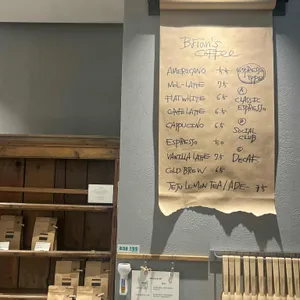 Brian's
Coffee
AMERICANO
FLAT WHITE 65
CAFE LATTE 65
CAPPUCINO 65
ESPRESSO
VANILLA LATTE 75
COLD BREW 65
LEMON TEA/ADE 75
ESPRESSO
TYPE
A
CLASSIC
ESPRESSO
B
SOCIAL
CLUB
C
DECAF